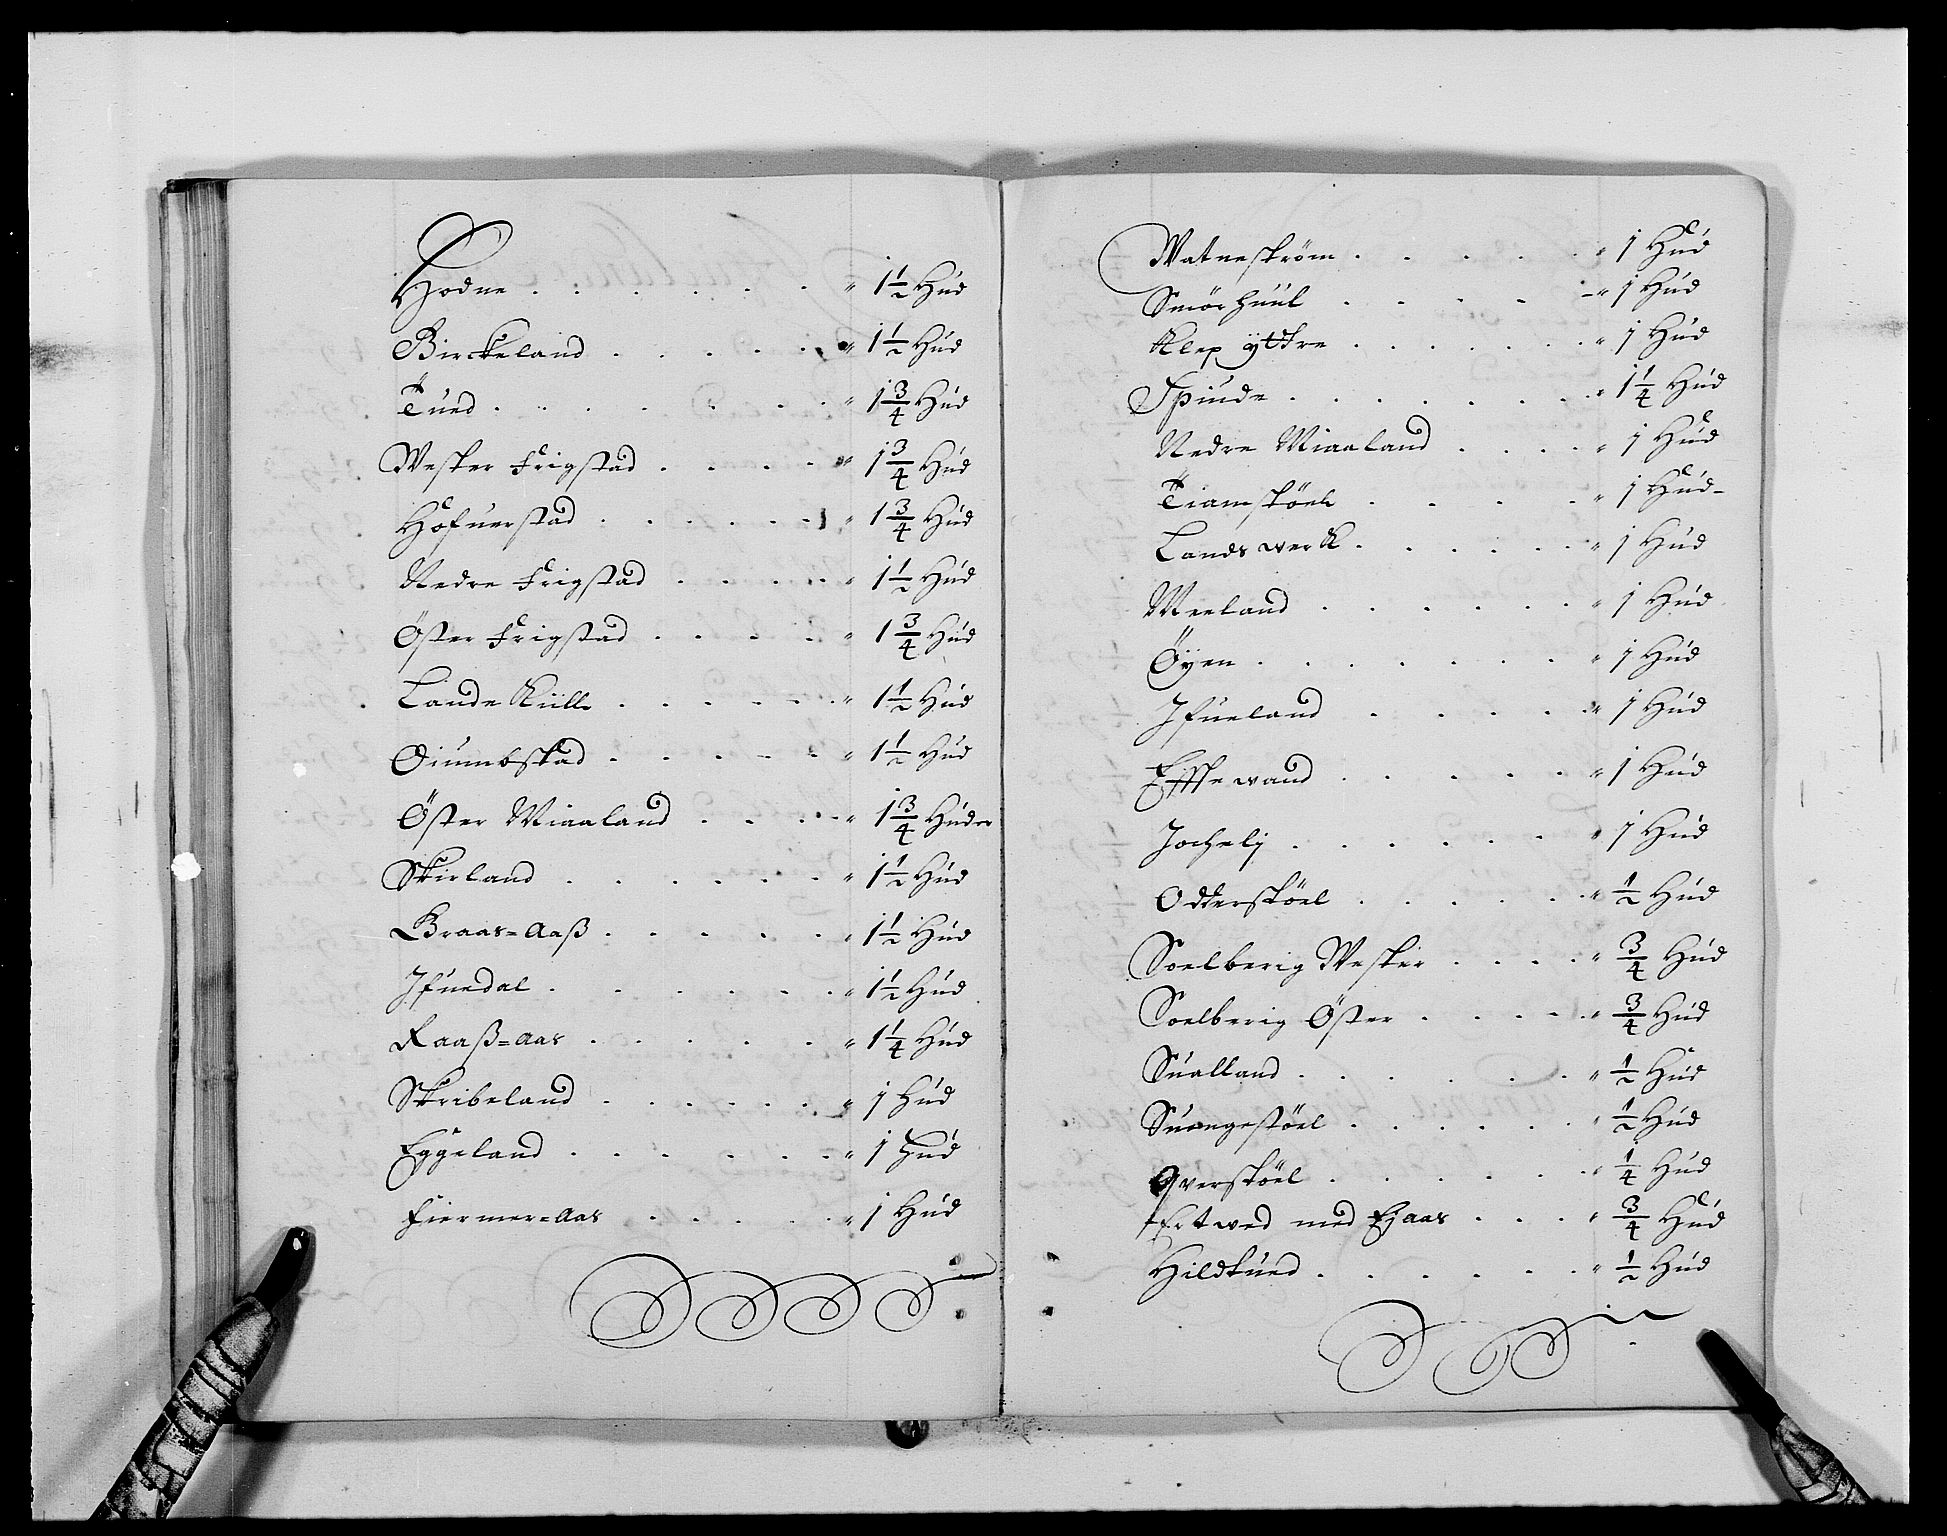 Hodne . . . . . . " 1½ Hud
Birckeland . . . . . " 1½ Hud
Tued . . . . . . . " 1¾ Hud
Wester Frigstad . . . . " 1¾ Hud
Hofuerstad . . . . . . " 1¾ Hud
Nedre Frigstad . . . . " 1½ Hud
Öster Frigstad . . . . . " 1¾ Hud
Lande Kiill . . . . . " 1½ Hud
Diumbstad . . . . . " 1½ Hud
Öster Miaaland . . . . " 1¾ Huder
Skirland . . . . . . " 1½ Hud
Braas=Aaß . . . . . " 1½ Hud
Ifuedal . . . . . . " 1½ Hud
Raaß=Aas . . . . . " 1¼ Hud
Skribeland . . . . . . " 1 Hud
Eggeland . . . . . . " 1 Hud
Fiermer=Aas . . . . " 1 Hud
Watneström . . . . . " 1 Hud
Smörhuul . . . . " 1 Hud
Klep yttre . . . . . . " 1 Hud
Stiude . . . . . . . " 1¼ Hud
Nedre Miaaland . . . . " 1 Hud
Tiamstöel . . . . " 1 Hud
Landswerk . . . . . " 1 Hud
Meeland . . . . . . " 1 Hud
Öyen . . . . . . . " 1 Hud
Ifueland . . . . . " 1 Hud
Effsewand . . . . . " 1 Hud
Jochelj . . . . . . " 1 Hud
Odderstöel . . . . . " ½ Hud
Soelberig Wester . . . . " ¾ Hud
Soelberig Öster . . . . . " ¾ Hud
Sualland . . . . . . " ½ Hud
Suangestöel . . . . . . " ½ Hud
Qverstöel . . . . . " ¼ Hud
Ertwed med Ejaas . . . " ¾ Hud
Hildtued . . . . . . " ½ Hud